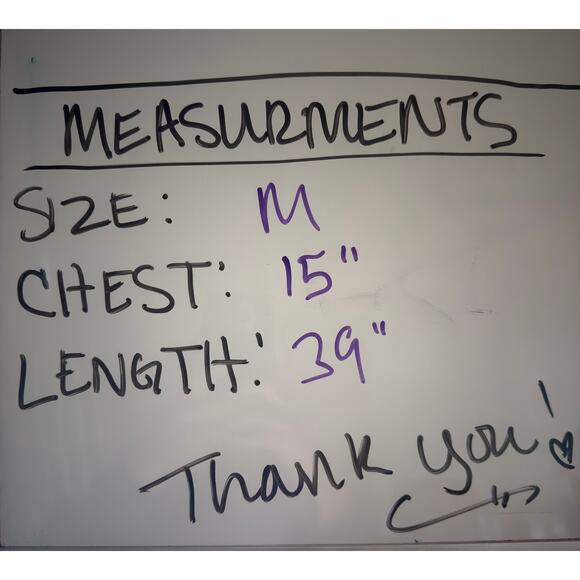 MEASURMENTS
SIZE: M
CHEST: 15"
LENGTH: 39"
Thank you!